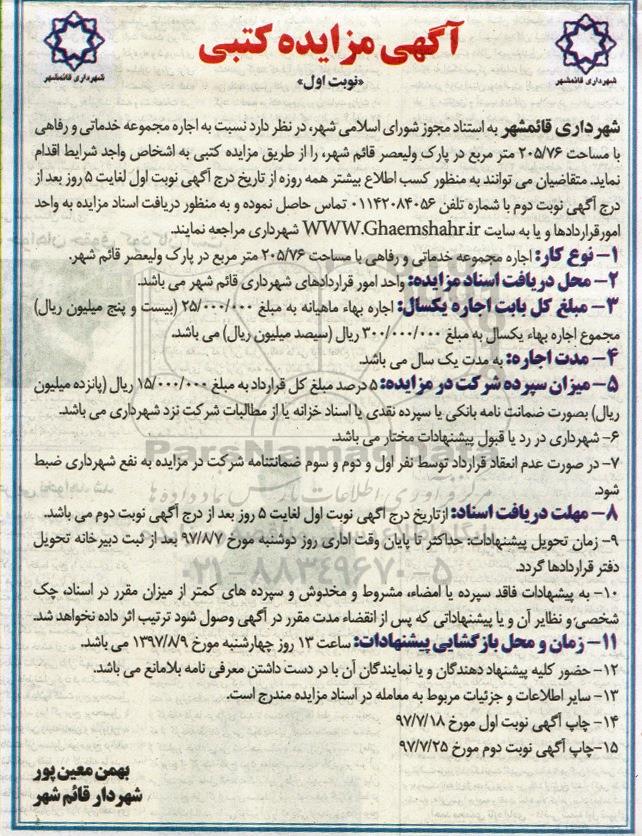 آگهی مزایده کتبی
«نوبت اول»
شهرداری قائمشهر
شهرداری قائمشهر
شهرداری قائمشهر به استناد مجوز شورای اسلامی شهر، در نظر دارد نسبت به اجاره مجموعه خدماتی و رفاهی
با مساحت ۲۰۵/۷۶ متر مربع در پارک ولیعصر قائم شهر، را از طریق مزایده کتبی به اشخاص واجد شرایط اقدام
نماید. متقاضیان می توانند به منظور کسب اطلاع بیشتر همه روزه از تاریخ درج آگهی نوبت اول لغایت ۵ روز بعد از
درج آگهی نوبت دوم با شماره تلفن ۰۱۱۴۲۰۸۴۰۵۶ تماس حاصل نموده و به منظور دریافت اسناد مزایده به واحد
امورقراردادها و یا به سایت WWW.Ghaemshahr.ir شهرداری مراجعه نمایند.
۱- نوع کار: اجاره مجموعه خدماتی و رفاهی با مساحت ۲۰۵/۷۶ متر مربع در پارک ولیعصر قائم شهر.
۲- محل دریافت اسناد مزایده: واحد امور قراردادهای شهرداری قائم شهر می باشد.
۳- مبلغ کل بابت اجاره یکسال: اجاره بهاء ماهیانه به مبلغ ۲۵/۰۰۰/۰۰۰ (بیست و پنج میلیون ریال)
مجموع اجاره بهاء یکسال به مبلغ ۳۰۰/۰۰۰/۰۰۰ ریال (سیصد میلیون ریال) می باشد.
۴- مدت اجاره: به مدت یک سال می باشد.
۵- میزان سپرده شرکت در مزایده: ۵ درصد مبلغ کل قرارداد به مبلغ ۱۵/۰۰۰/۰۰۰ ریال (پانزده میلیون
ریال) بصورت ضمانت نامه بانکی یا سپرده نقدی یا اسناد خزانه یا از مطالبات شرکت نزد شهرداری می باشد.
۶- شهرداری در رد یا قبول پیشنهادات مختار می باشد.
ParsNamadData
۷- در صورت عدم انعقاد قرارداد توسط نفر اول و دوم و سوم ضمانتنامه شرکت در مزایده به نفع شهرداری ضبط
شود.
۸- مهلت دریافت اسناد: ازتاریخ درج آگهی نوبت اول لغایت ۵ روز بعد از درج آگهی نوبت دوم می باشد.
۹- زمان تحویل پیشنهادات: حداکثر تا پایان وقت اداری روز دوشنبه مورخ ۹۷/۸/۷ بعد از ثبت دبیرخانه تحویل
دفتر قراردادها گردد.
۰۲۱-۸۸۳۴۹۶۷۰-۵
۱۰- به پیشهادات فاقد سپرده یا امضاء، مشروط و مخدوش و سپرده های کمتر از میزان مقرر در اسناد، چک
شخصی و نظایر آن و یا پیشنهاداتی که پس از انقضاء مدت مقرر در آگهی وصول شود ترتیب اثر داده نخواهد شد.
۱۱- زمان و محل بازگشایی پیشنهادات: ساعت ۱۳ روز چهارشنبه مورخ ۱۳۹۷/۸/۹ می باشد.
۱۲- حضور کلیه پیشنهاد دهندگان و یا نمایندگان آن با در دست داشتن معرفی نامه بلامانع می باشد.
۱۳- سایر اطلاعات و جزئیات مربوط به معامله در اسناد مزایده مندرج است.
۱۴- چاپ آگهی نوبت اول مورخ ۹۷/۷/۱۸
۱۵-چاپ آگهی نوبت دوم مورخ ۹۷/۷/۲۵
بهمن معین پور
شهردار قائم شهر